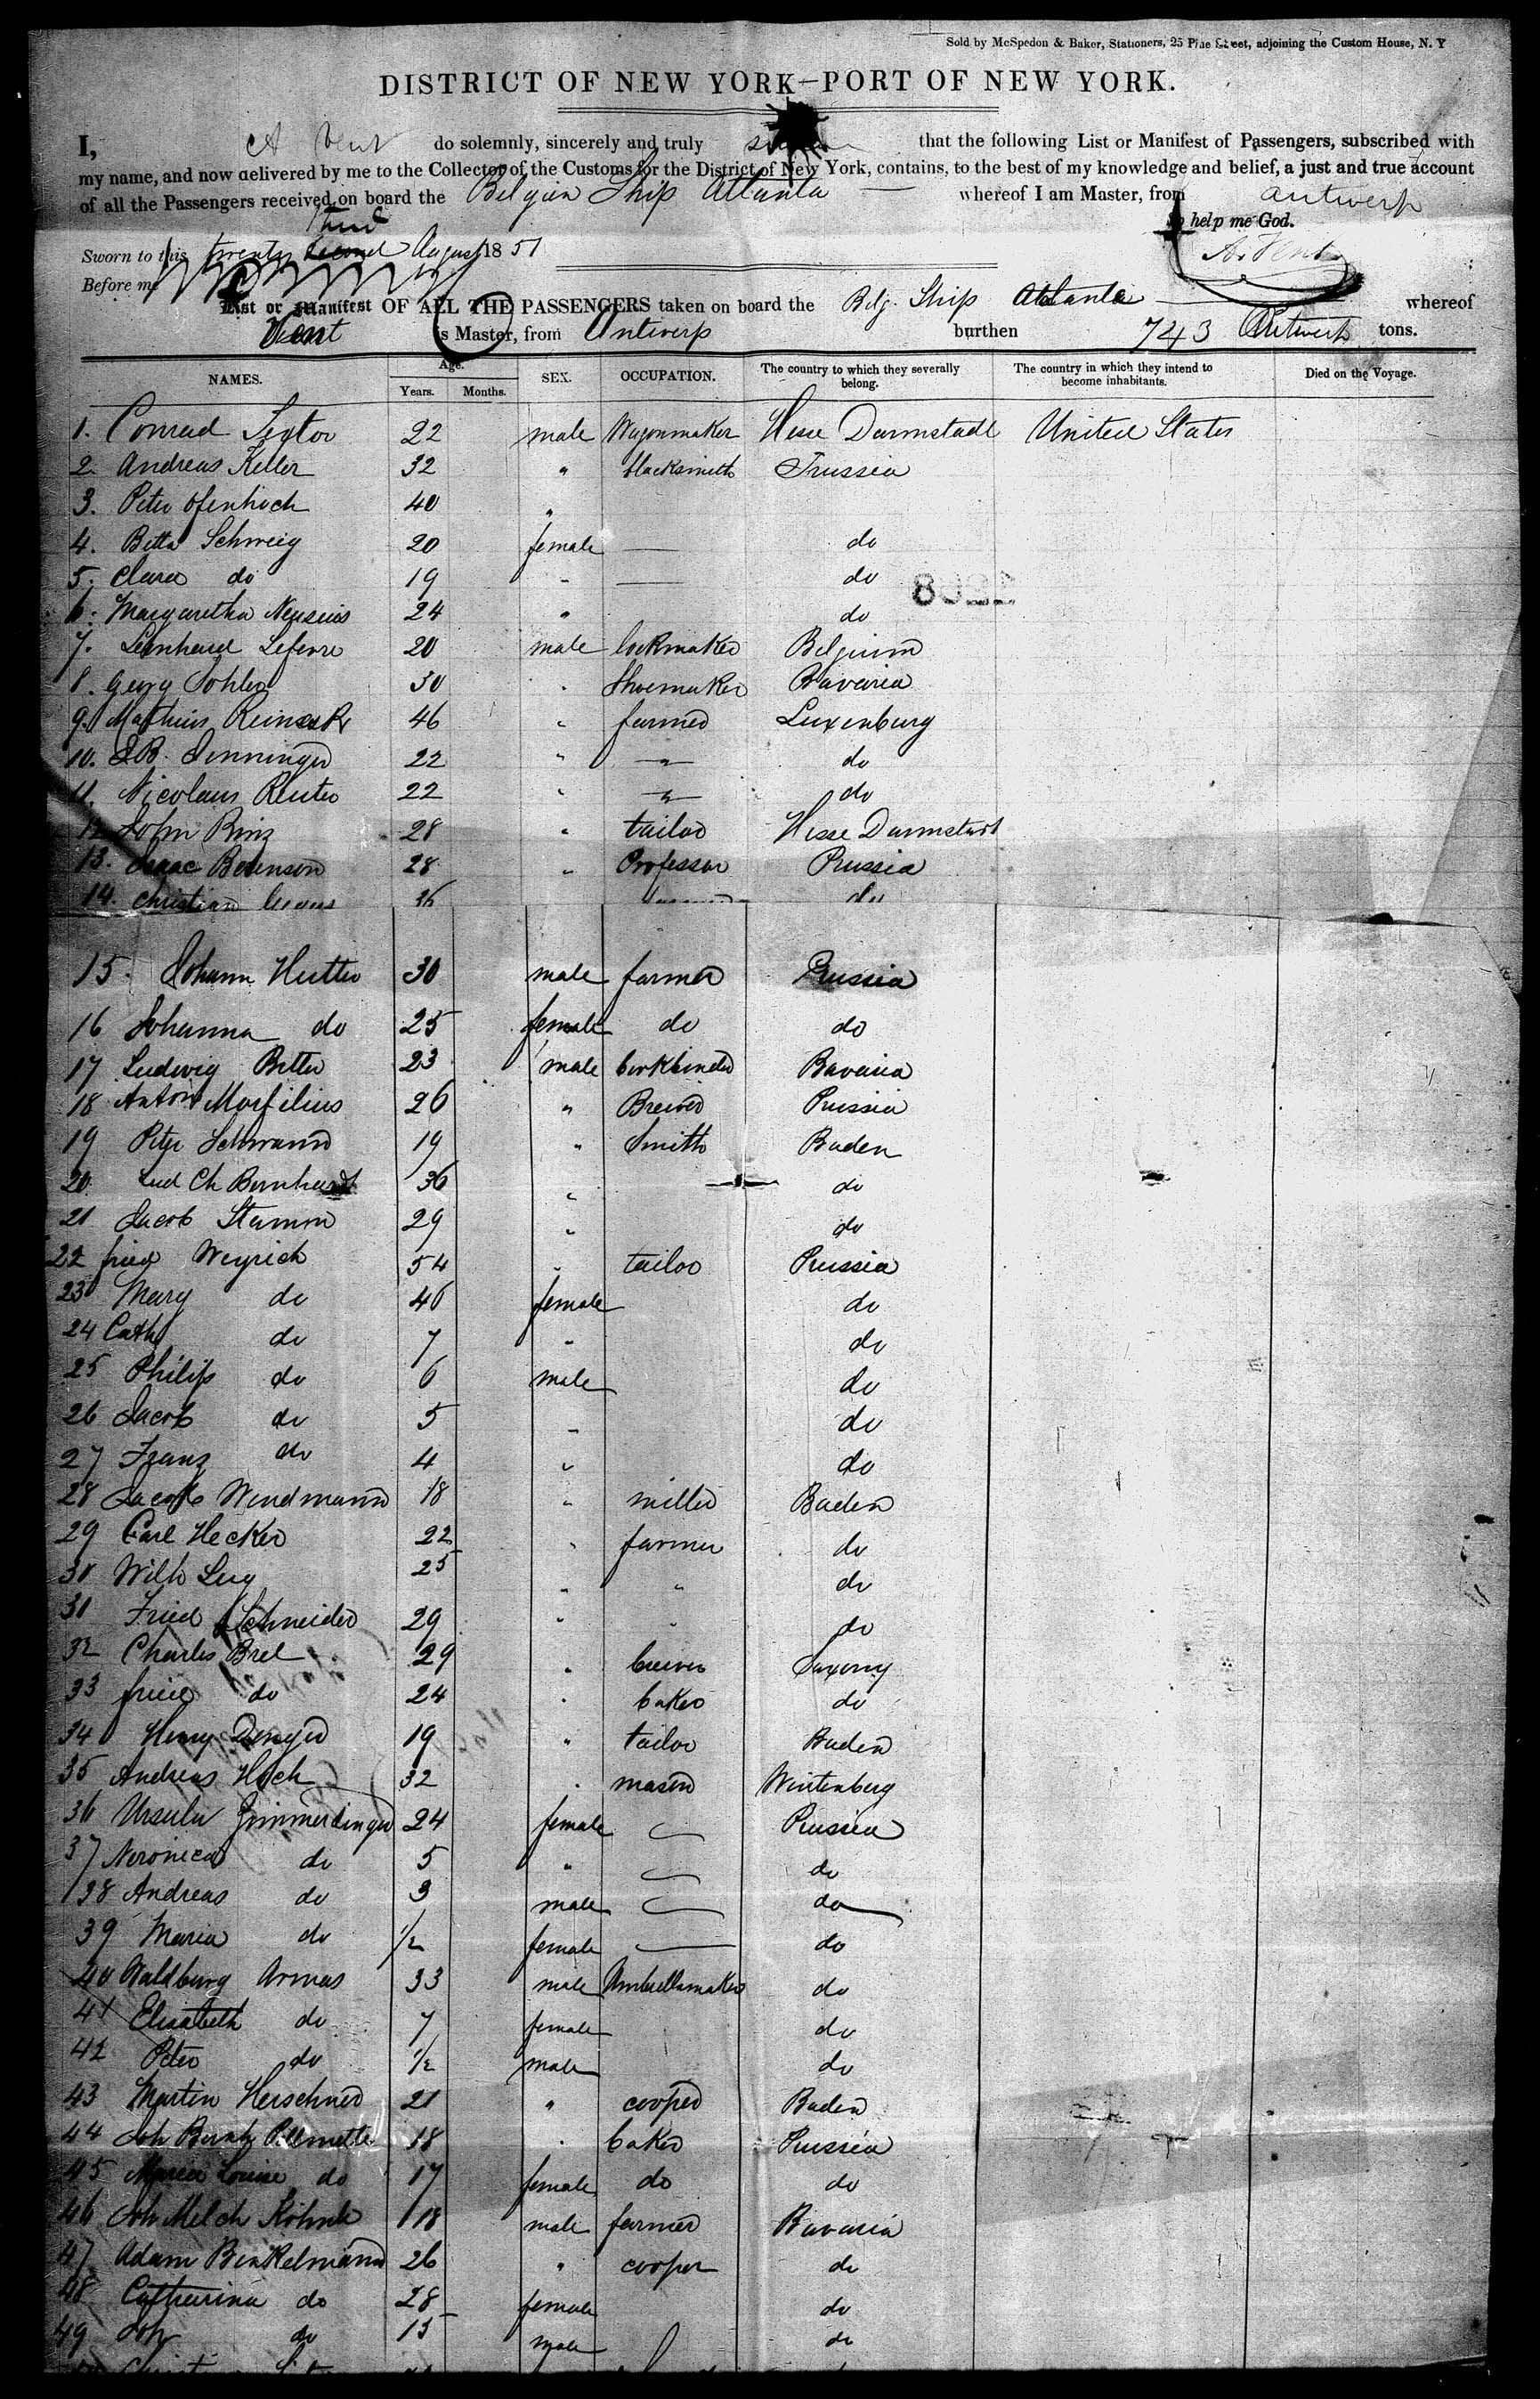 Sold by McSpedon & Baker, Stationers, 25 Pine Street, adjoining the Custom House, N. Y
DISTRICT OF NEW YORK—PORT OF NEW YORK.
I, A Vent do solemnly, sincerely and truly that the following List or Manifest of Passengers, subscribed with
my name, and now delivered by me to the Collector of the Customs for the District of New York, contains, to the best of my knowledge and belief, a just and true account
of all the Passengers received on board the Belgian Ship Atlanta whereof I am Master, from Antwerp
So help me God.
Sworn to this twenty August 1851 A. Vent
Before me
List or Manifest OF ALL THE PASSENGERS taken on board the Belg. Ship Atlanta whereof
Vent is Master, from Antwerp burthen 743 Antwerp tons.
NAMES. Age. Years. Months. SEX. OCCUPATION. The country to which they severally belong. The country in which they intend to become inhabitants. Died on the Voyage.
1. Conrad 22 male Wagonmaker Hesse Darmstadt United States
2. Andreas Keller 32 " blacksmith Prussia
3. Peter 40 "
4. Betta Schweig 20 female — do
5. Clara do 19 " — do
8022
6. Margaretha 24 " do
7. Lefevre 20 male lockmaker Belgium
8. Georg 30 " Shoemaker Bavaria
9. Mathias 46 " farmer Luxenburg
10. 22 " " do
11. Nicolaus Reuter 22 " " do
12 John Rinz 28 " tailor Hesse Darmstadt
13. Isaac 28 " Professor Prussia
14. Christian 36 do
15. Johann Hutter 30 male farmer Prussia
16 Johanna do 25 female do do
17 Ludwig Better 23 male bookbinder Bavaria
18 Anton 26 " Brewer Prussia
19 Peter Schwann 19 " Smith Baden
20 Lud Ch Bernhardt 36 " do
21 Jacob Stamm 29 " do
22 fried Weyrich 54 " tailor Prussia
23 Mary do 46 female do
24 Cath do 7 " do
25 Philip do 6 male do
26 Jacob do 5 " do
27 Franz do 4 " do
28 Jacob Wendmann 18 " miller Baden
29 Carl Hecker 22 " farmer do
30 Wilh 25 " " do
31 Fried Schneider 29 " " do
32 Charles Brel 29 " brewer Saxony
33 fried do 24 " baker do
34 Henry 19 " tailor Baden
35 Andreas Hock 32 " mason Wirtenberg
36 Ursula Zimmerdinger 24 female Prussia
37 Veronica do 5 " do
38 Andreas do 3 male do
39 Maria do 1/2 female — do
40 Waldburg Armas 33 male Umbrellamaker do
41 Elisabeth do 7 female do
42 Peter do 1/2 male do
43 Martin Herschner 21 " cooper Baden
44 Joh 18 " baker Prussia
45 Maria Louise do 17 female do do
46 Joh Melch 18 male farmer Bavaria
47 Adam Benkelmann 26 " cooper do
48 Catharina do 28 female do
49 Joh do 15 male do